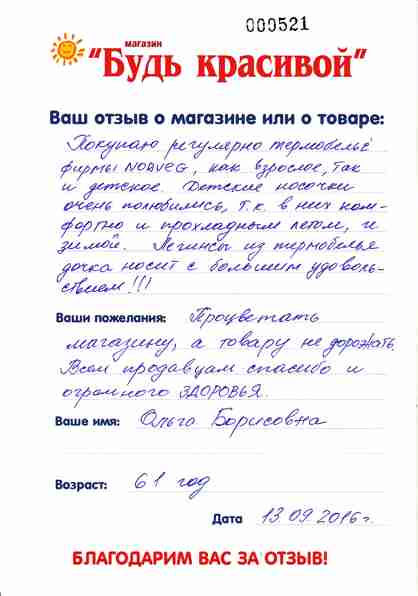 000521
магазин
"Будь красивой"
Ваш отзыв о магазине или о товаре:
Покупаю регулярно термобельё
фирмы NORVEG, как взрослое, так
и детское. Детские носочки
очень полюбились, т.к. в них ком-
фортно и прохладным летом, и
зимой. Легинсы из термобелья
дочка носит с большим удоволь-
ствием!!!
Ваши пожелания: Процветать
магазину, а товару не дорожать.
Всем продавцам спасибо и
огромного ЗДОРОВЬЯ.
Ваше имя: Ольга Борисовна
Возраст: 61 год
Дата 13.09.2016г.
БЛАГОДАРИМ ВАС ЗА ОТЗЫВ!